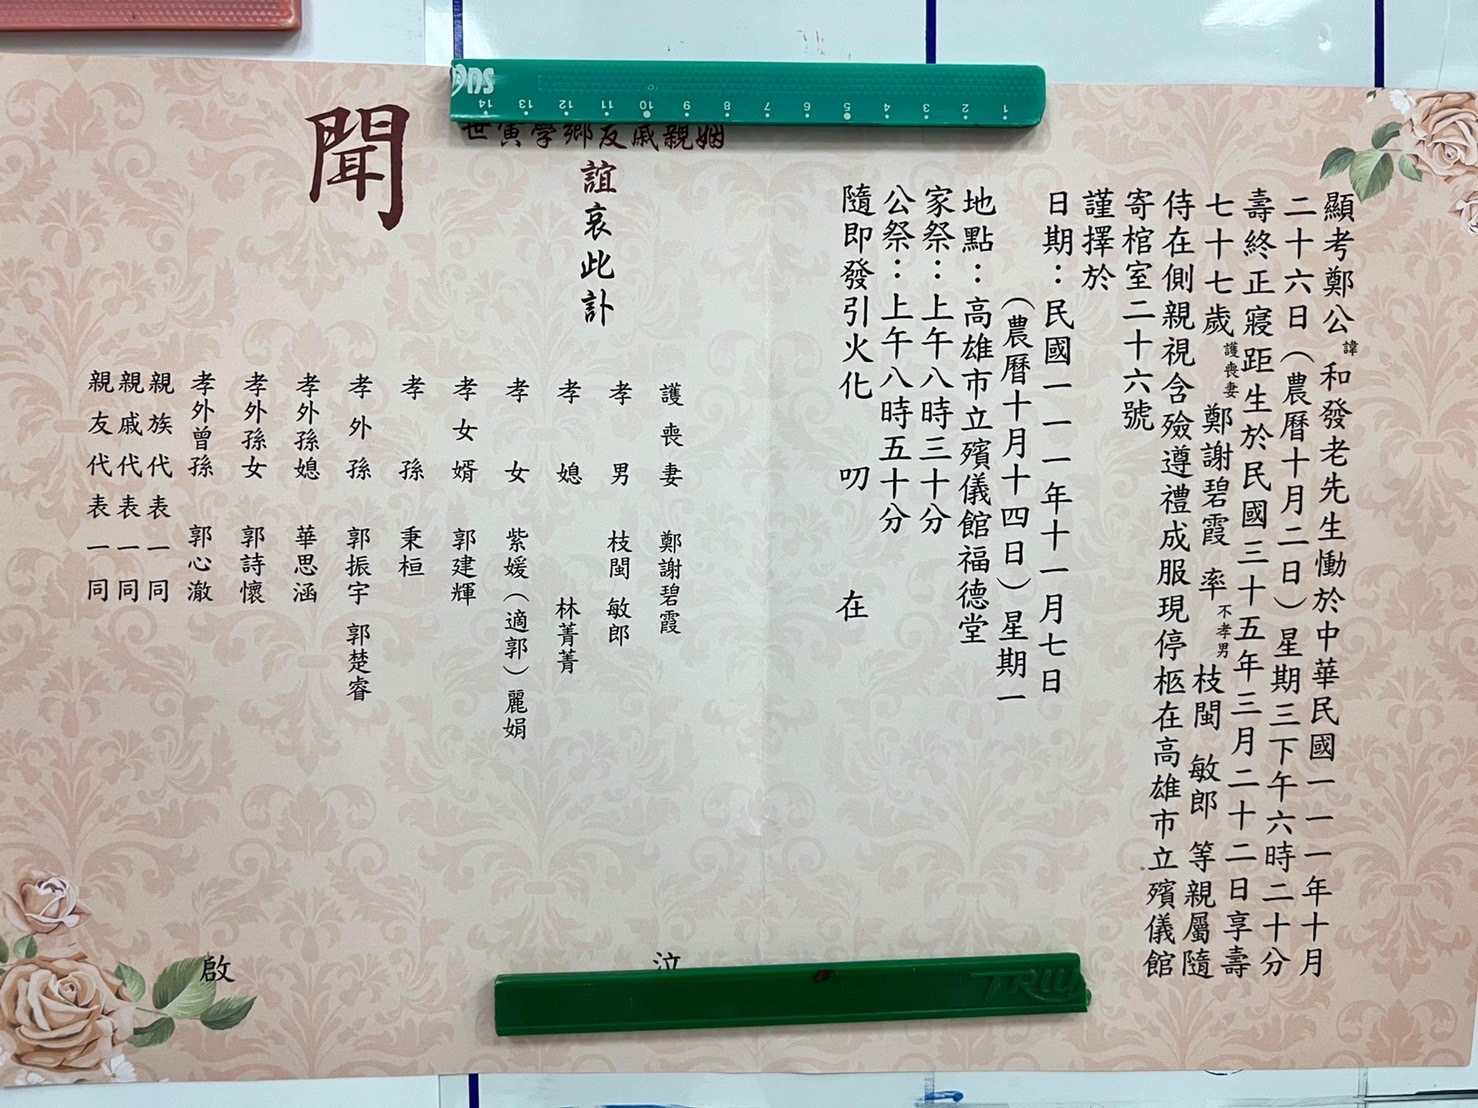 顯考鄭公諱和發老先生慟於中華民國一一一年十月
二十六日（農曆十月二日）星期三下午六時二十分
壽終正寢距生於民國三十五年三月二十二日享壽
七十七歲護喪妻鄭謝碧霞 率不孝男枝閩 敏郎 等親屬隨
侍在側親視含殮遵禮成服現停柩在高雄市立殯儀館
寄棺室二十六號
謹擇於
日期：民國一一一年十一月七日
（農曆十月十四日）星期一
地點：高雄市立殯儀館福德堂
家祭：上午八時三十分
公祭：上午八時五十分
隨即發引火化 叨 在
姻親戚友鄉學寅世
誼哀此訃
聞
護喪妻 鄭謝碧霞
孝男 枝閩 敏郎
孝媳 林菁菁
孝女 紫媛（適郭）麗娟
孝女婿 郭建輝
孝孫 秉桓
孝外孫 郭振宇 郭楚睿
孝外孫媳 華思涵
孝外孫女 郭詩懷
孝外曾孫 郭心澈
親族代表一同
親戚代表一同
親友代表一同
泣
啟
14 13 12 11 10 9 8 7 6 5 4 3 2 1